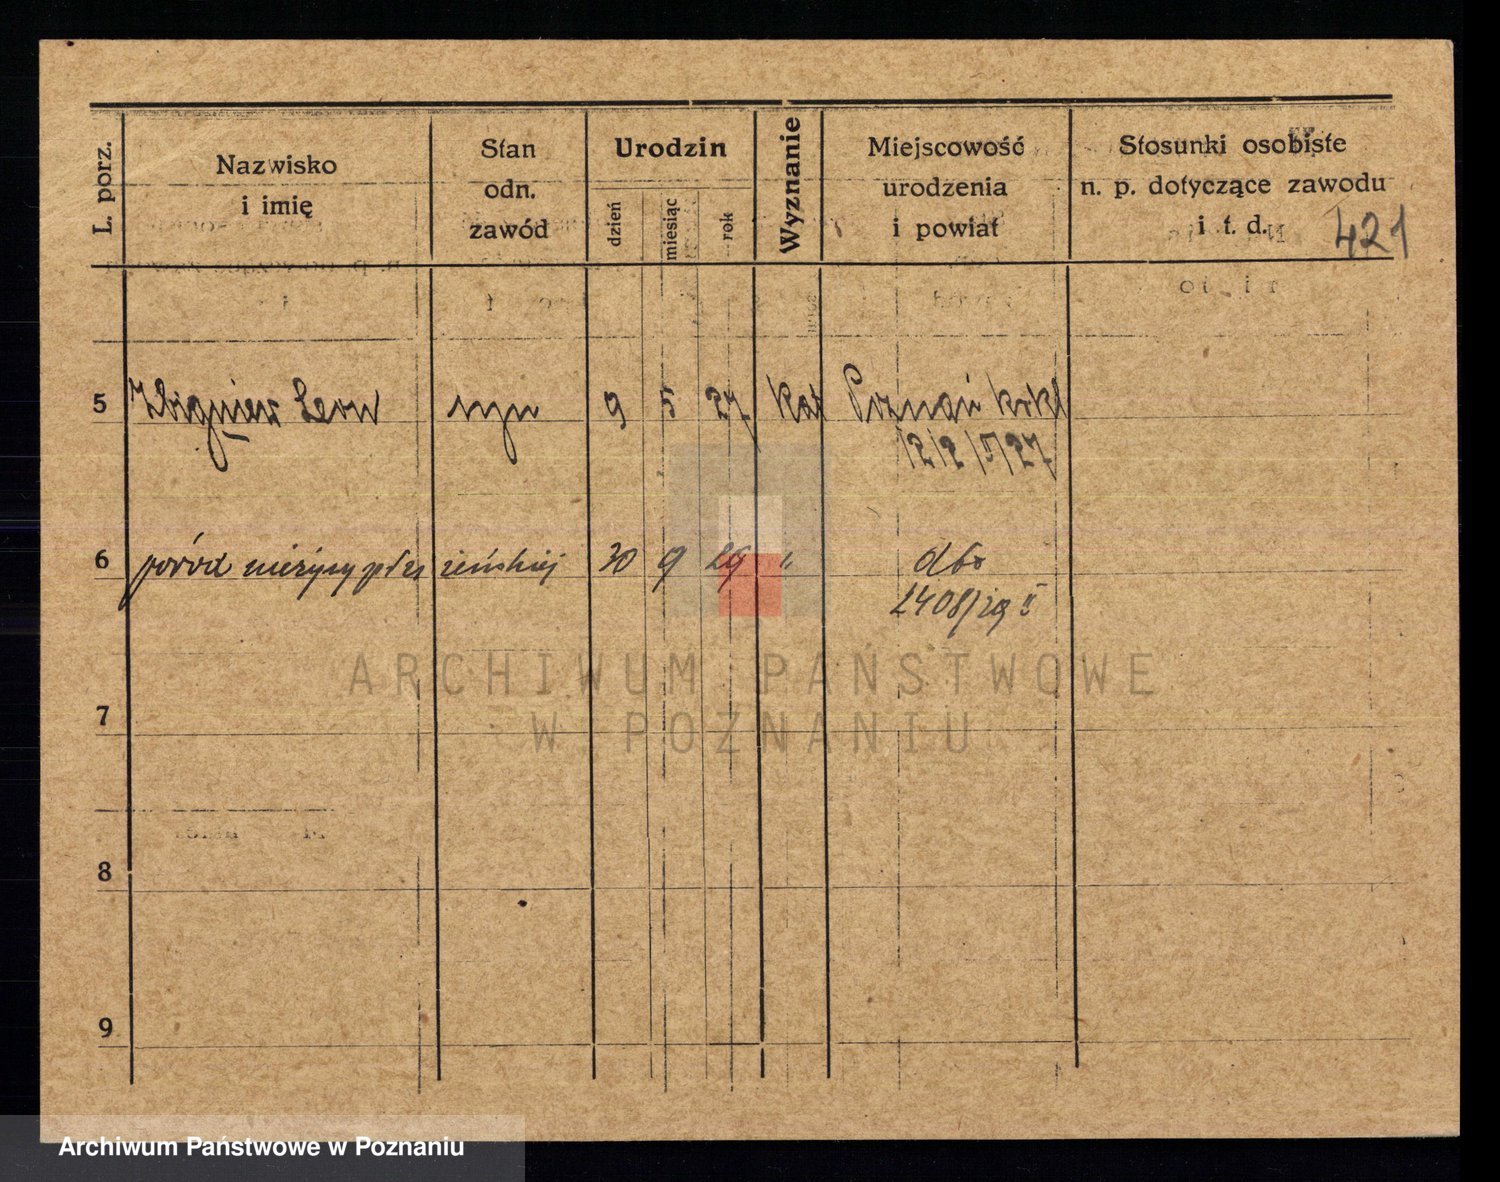 L. porz.
Nazwisko
i imię
Stan
odn.
zawód
Urodzin
dzień
miesiąc
rok
Wyznanie
Miejscowość
urodzenia
i powiat
Stosunki osobiste
n. p. dotyczące zawodu
i t. d.
421
5 Zbigniew Leon syn 9 5 27 kat Poznań
6 poród nieżywy płci żeńskiej 30 9 29 "
2408/29 II
7
8
9
ARCHIWUM PAŃSTWOWE
W POZNANIU
Archiwum Państwowe w Poznaniu